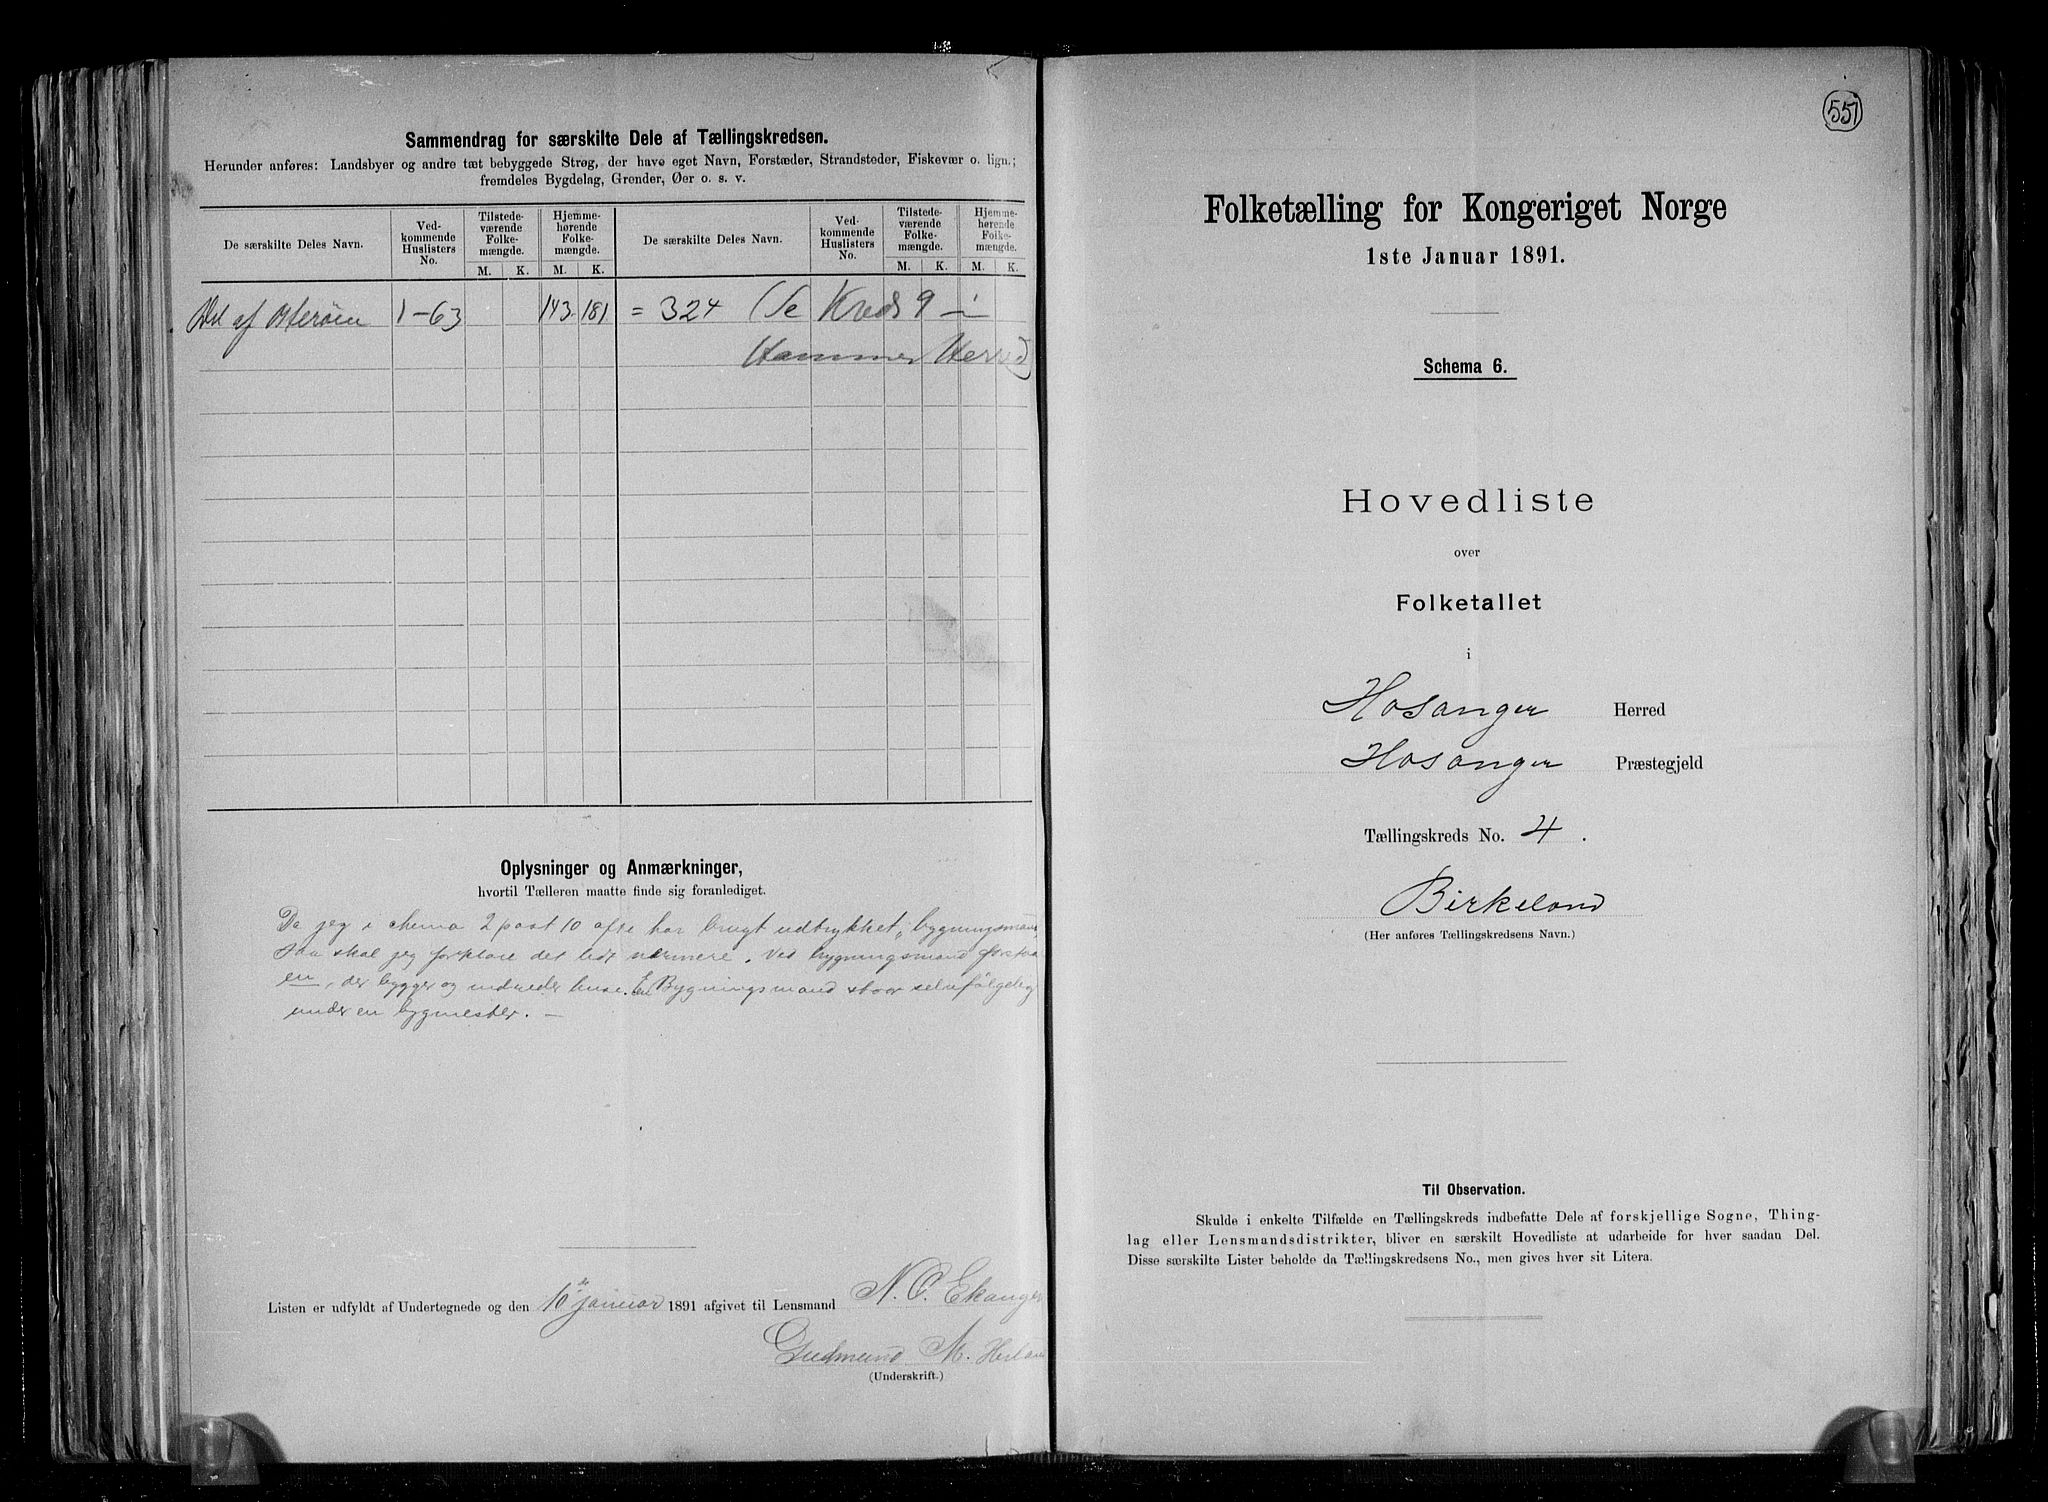 Sammendrag for særskilte Dele af Tællingskredsen.
Herunder anføres: Landsbyer og andre tæt bebyggede Strøg, der have eget Navn, Forstæder, Strandsteder, Fiskevær o. lign.;
fremdeles Bygdelag, Grender, Øer o. s. v.
De særskilte Deles Navn.
Ved-
kommende
Huslisters
No.
Tilstede-
værende
Folke-
mængde.
M. K.
Hjemme-
hørende
Folke-
mængde.
M. K.
De særskilte Deles Navn.
Ved-
kommende
Huslisters
No.
Tilstede-
værende
Folke-
mængde.
M. K.
Hjemme-
hørende
Folke-
mængde.
M. K.
Del af Osterøen 1-63 143 181 = 324 (Se Kreds 9 i
Hammer Herred)
Oplysninger og Anmærkninger,
hvortil Tælleren maatte finde sig foranlediget.
Da jeg i chema 2 post 10 ofte har brugt udtrykket "bygningsmand,
saa skal jeg forklare det lidt nærmere. Ved bygningsmand forstaa
en, der bygger og indreder huse. En Bygningsmand staar selvfølgelig
under en bygmester. —
Listen er udfyldt af Undertegnede og den 10de januar 1891 afgivet til Lensmand N. C. Ekanger
Gudmund M. Herland
(Underskrift.)
557
Folketælling for Kongeriget Norge
1ste Januar 1891.
Schema 6.
Hovedliste
over
Folketallet
i
Hosanger Herred
Hosanger Præstegjeld
Tællingskreds No. 4.
Birkeland
(Her anføres Tællingskredsens Navn.)
Til Observation.
Skulde i enkelte Tilfælde en Tællingskreds indbefatte Dele af forskjellige Sogne, Thing-
lag eller Lensmandsdistrikter, bliver en særskilt Hovedliste at udarbeide for hver saadan Del.
Disse særskilte Lister beholde da Tællingskredsens No., men gives hver sit Litera.